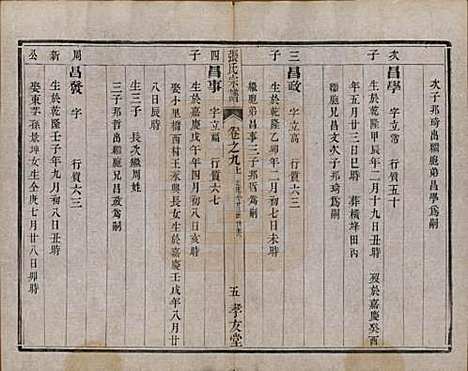 次子邦琦出繼胞弟昌學爲嗣
次子
昌學 字立富 行質五十
生於乾隆甲辰年二月十九日丑時 歿於嘉慶癸酉
年五月廿三日巳時 葬橫埄田內
繼胞兄昌文次子邦琦爲嗣
三子
昌政 字立高 行質六三
生於乾隆乙卯年二月初七日未時
繼胞弟昌事三子邦哲爲嗣
張氏宗譜
卷之九上
五
孝友堂
四子
昌事 字立 行質六七
生於嘉慶戊午年四月初八日亥時
娶小里橋西林王永興長女生於嘉慶壬戌年八月廿
八日辰時
生三子 長次繼周姓
三子邦哲出繼胞兄昌政爲嗣
周新公
昌發 字 行質六三
生於乾隆壬子年九月初八日丑時
娶東芧孫景坤女生全庚七月廿八日卯時